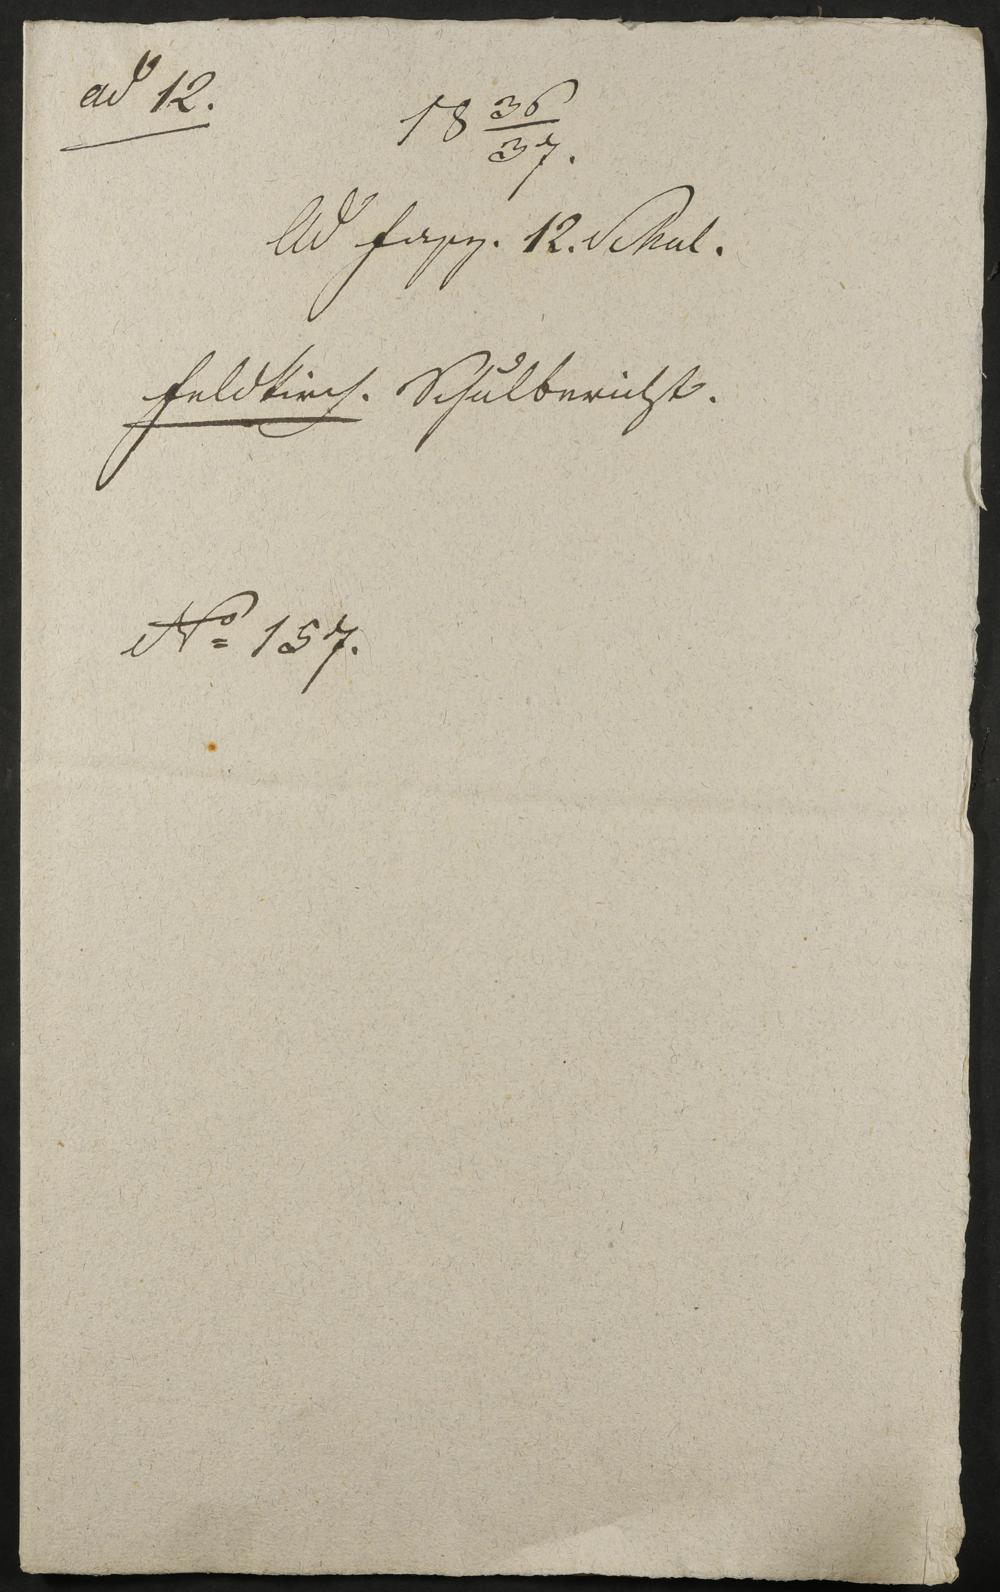 ad 12.
18 36/37.
Ad 12. Schul.
Feldkirch. Schulbericht.
No 157.